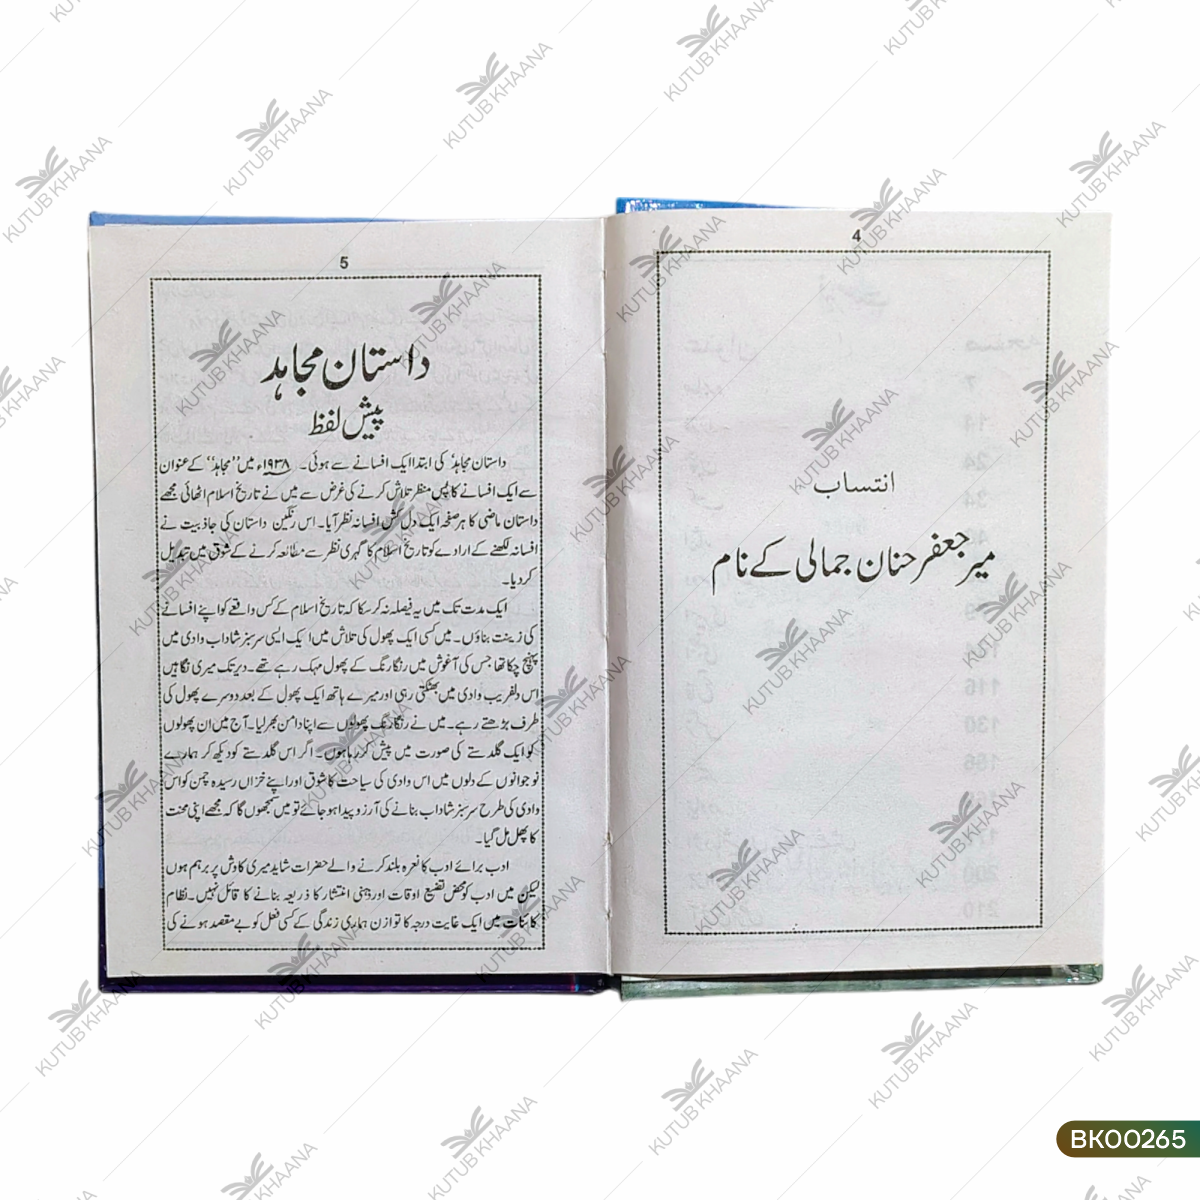 4
انتساب
میر جعفر خان جمالی کے نام
5
داستان مجاہد
پیش لفظ
داستان مجاہد کی ابتدا ایک افسانے سے ہوئی۔ ۱۹۳۸ء میں ”مجاہد“ کے عنوان
سے ایک افسانے کا پس منظر تلاش کرنے کی غرض سے میں نے تاریخ اسلام اٹھائی مجھے
داستان ماضی کا ہر صفحہ ایک دل کش افسانہ نظر آیا۔ اس رنگین داستان کی جاذبیت نے
افسانہ لکھنے کے ارادے کو تاریخ اسلام کا گہری نظر سے مطالعہ کرنے کے شوق میں تبدیل
کر دیا۔
ایک مدت تک میں یہ فیصلہ نہ کر سکا کہ تاریخ اسلام کے کس واقعے کو اپنے افسانے
کی زینت بناؤں۔ میں کسی ایک پھول کی تلاش میں ایک ایسی سرسبز شاداب وادی میں
پہنچ چکا تھا جس کی آغوش میں رنگا رنگ کے پھول مہک رہے تھے۔ دیر تک میری نگاہیں
اس دلفریب وادی میں بھٹکتی رہی اور میرے ہاتھ ایک پھول کے بعد دوسرے پھول کی
طرف بڑھتے رہے۔ میں نے رنگا رنگ پھولوں سے اپنا دامن بھر لیا۔ آج میں ان پھولوں
کو ایک گلدستے کی صورت میں پیش کر رہا ہوں۔ اگر اس گلدستے کو دیکھ کر ہمارے
نوجوانوں کے دلوں میں اس وادی کی سیاحت کا شوق اور اپنے خزاں رسیدہ چمن کو اس
وادی کی طرح سرسبز شاداب بنانے کی آرزو پیدا ہو جائے تو میں سمجھوں گا کہ مجھے اپنی محنت
کا پھل مل گیا۔
ادب برائے ادب کا نعرہ بلند کرنے والے حضرات شاید میری کاوش پر برہم ہوں
لیکن میں ادب کو محض تضیع اوقات اور ذہنی انتشار کا ذریعہ بنانے کا قائل نہیں۔ نظام
کائنات میں ایک غایت درجہ کا توازن ہماری زندگی کے کسی فعل کو بے مقصد ہونے کی
KUTUB KHAANA
BK00265